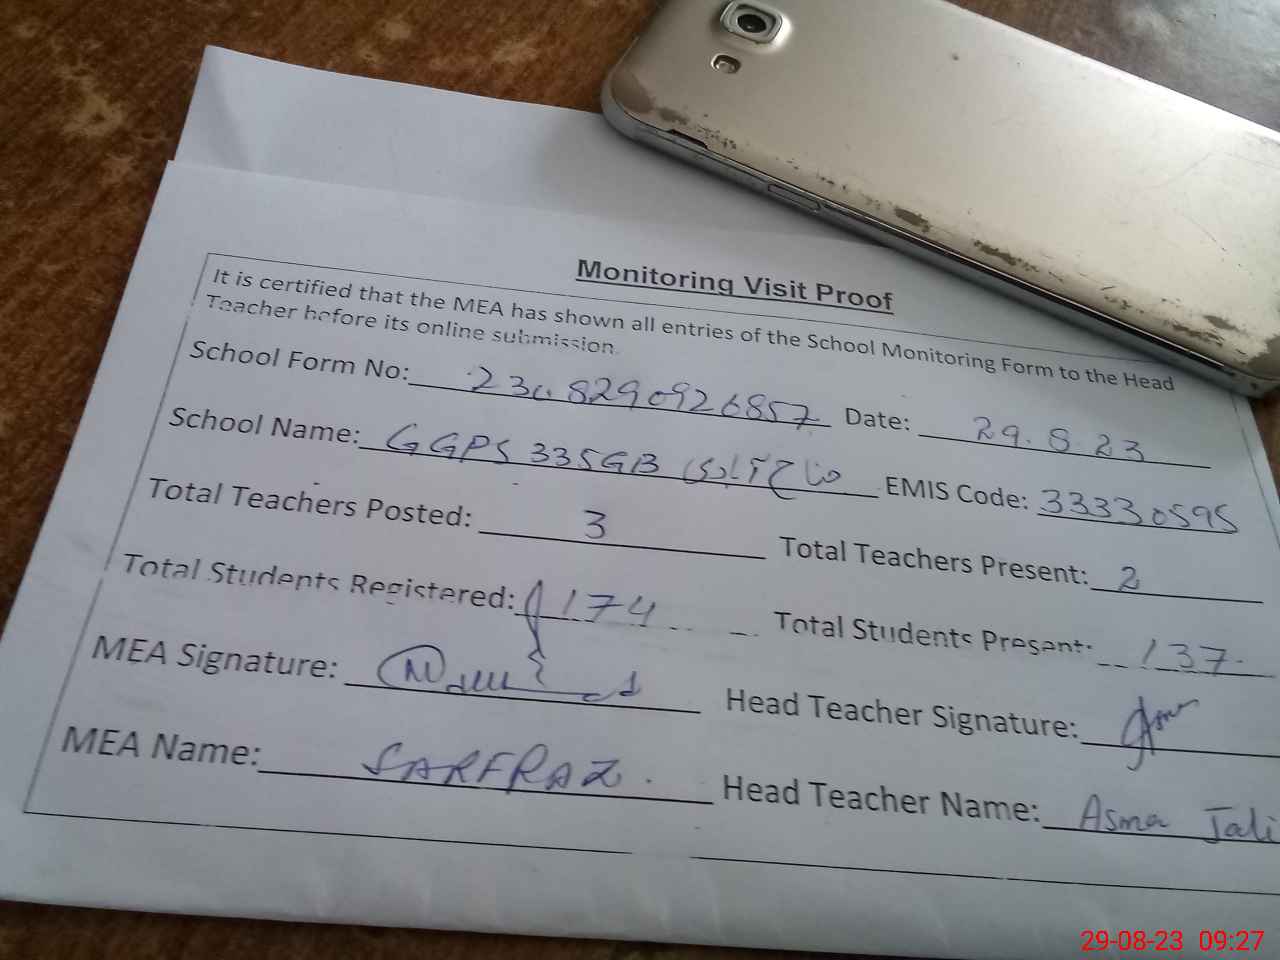 Monitoring Visit Proof
It is certified that the MEA has shown all entries of the School Monitoring Form to the Head
Teacher before its online submission.
School Form No: 2308290926857 Date: 29.8.23
School Name: GGPS 335GB EMIS Code: 33330595
Total Teachers Posted: 3 Total Teachers Present: 2
Total Students Registered: 174 Total Students Present: 137
MEA Signature: Head Teacher Signature:
MEA Name: SARFRAZ. Head Teacher Name: Asma Jali
29-08-23 09:27